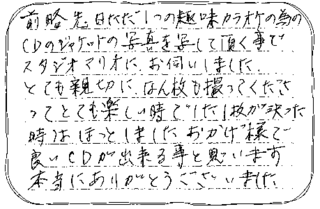 前略先日ただ1つの趣味カラオケの為の
CDのジャケットの写真を写して頂く事で
スタジオマリオに、お伺いしました
とても親切に、なん枚も撮ってくださ
ってとても楽しい時でした1枚が決った
時はほっとしましたおかげ様で
良いCDが出来る事と思います
本当にありがとうございました